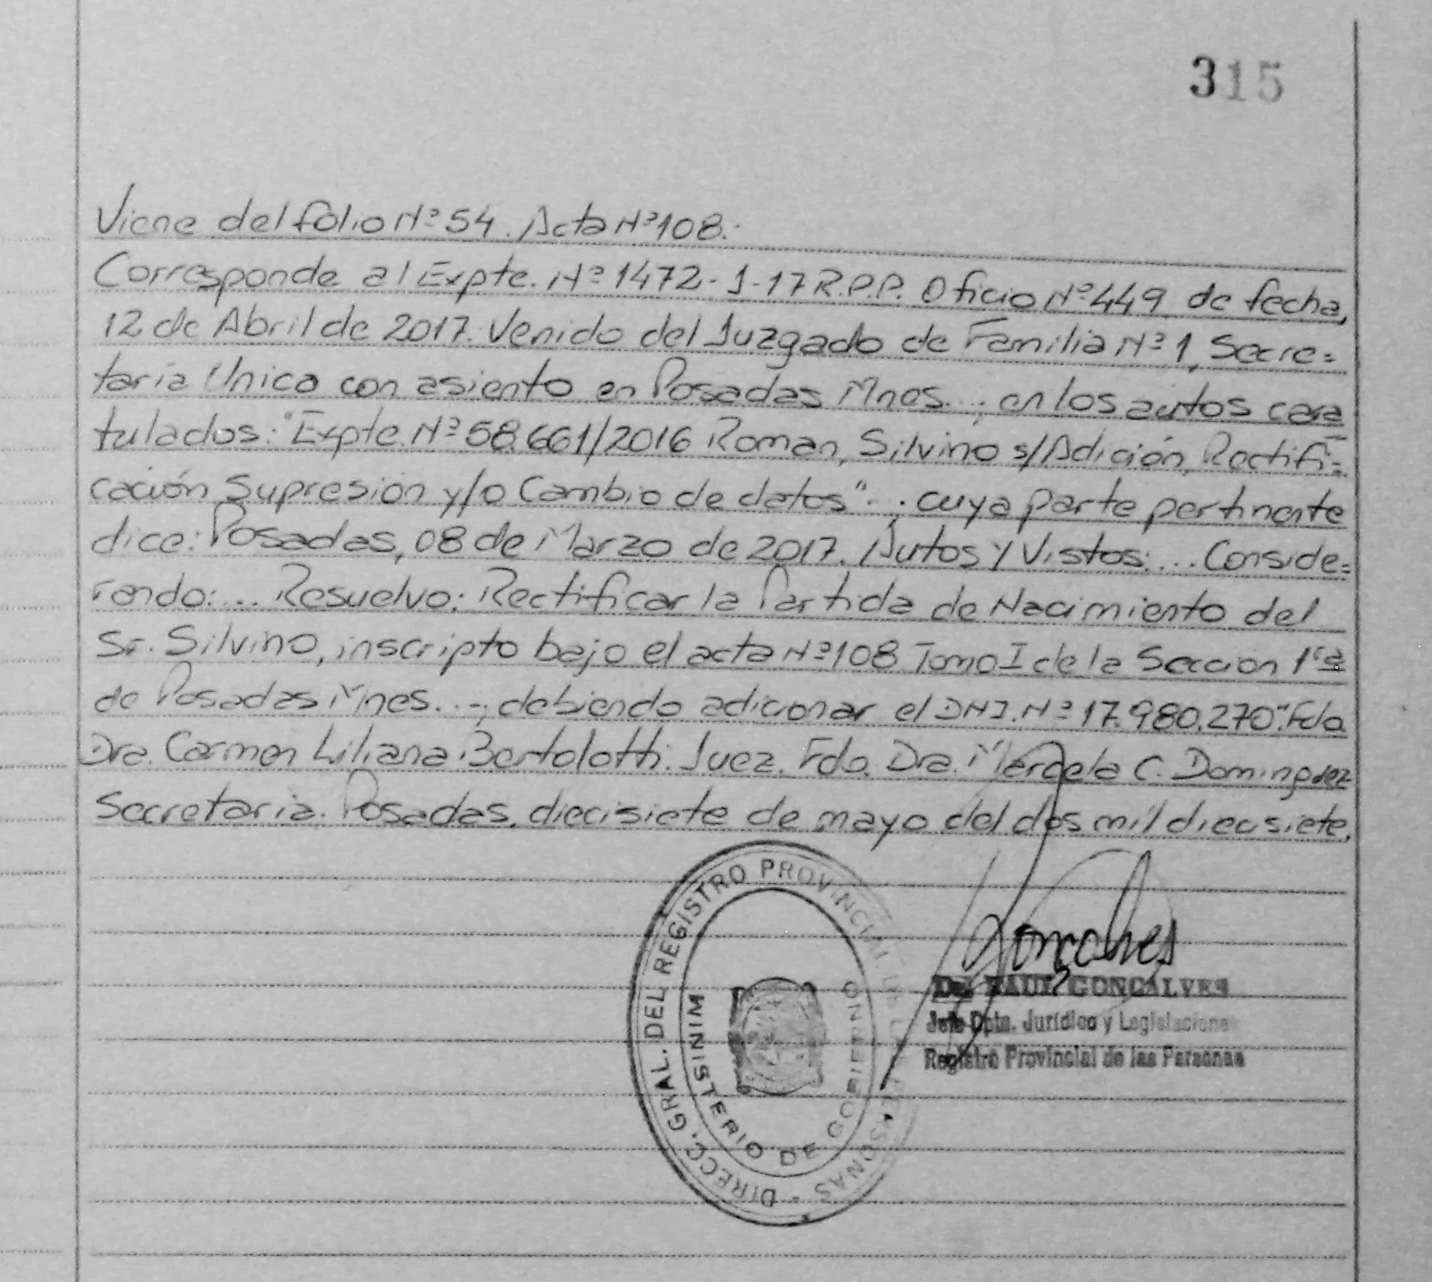 315
Viene del folio Nº 54. Acta Nº 108.-
Corresponde al Expte. Nº 1472-J-17 R.P.P. Oficio Nº 449 de fecha,
12 de Abril de 2017. Venido del Juzgado de Familia Nº 1, Secre=
taría Unica con asiento en Posadas Mnes...; en los autos cara
tulados: "Expte. Nº 58.661/2016 Roman, Silvino s/Adición, Rectifi=
cación Supresión y/o Cambio de datos"..; cuya parte pertinente
dice: Posadas, 08 de Marzo de 2017. Autos y Vistos:... Conside=
rando:... Resuelvo: Rectificar la Partida de Nacimiento del
Sr. Silvino, inscripto bajo el acta Nº 108 Tomo I de la Sección 1ra
de Posadas Mnes...; debiendo adicionar el DNI. Nº 17.980.270". Fdo
Dra. Carmen Liliana Bertolotti. Juez. Fdo. Dra. Marcela C. Dominguez
Secretaria. Posadas, diecisiete de mayo del dos mil diecisiete.
DIRECC. GRAL. DEL REGISTRO PROVINCIAL DE LAS PERSONAS
MINISTERIO DE GOBIERNO
Goncalves
Dr. RAUL GONCALVES
Jefe Dpto. Jurídico y Legislaciones
Registro Provincial de las Personas